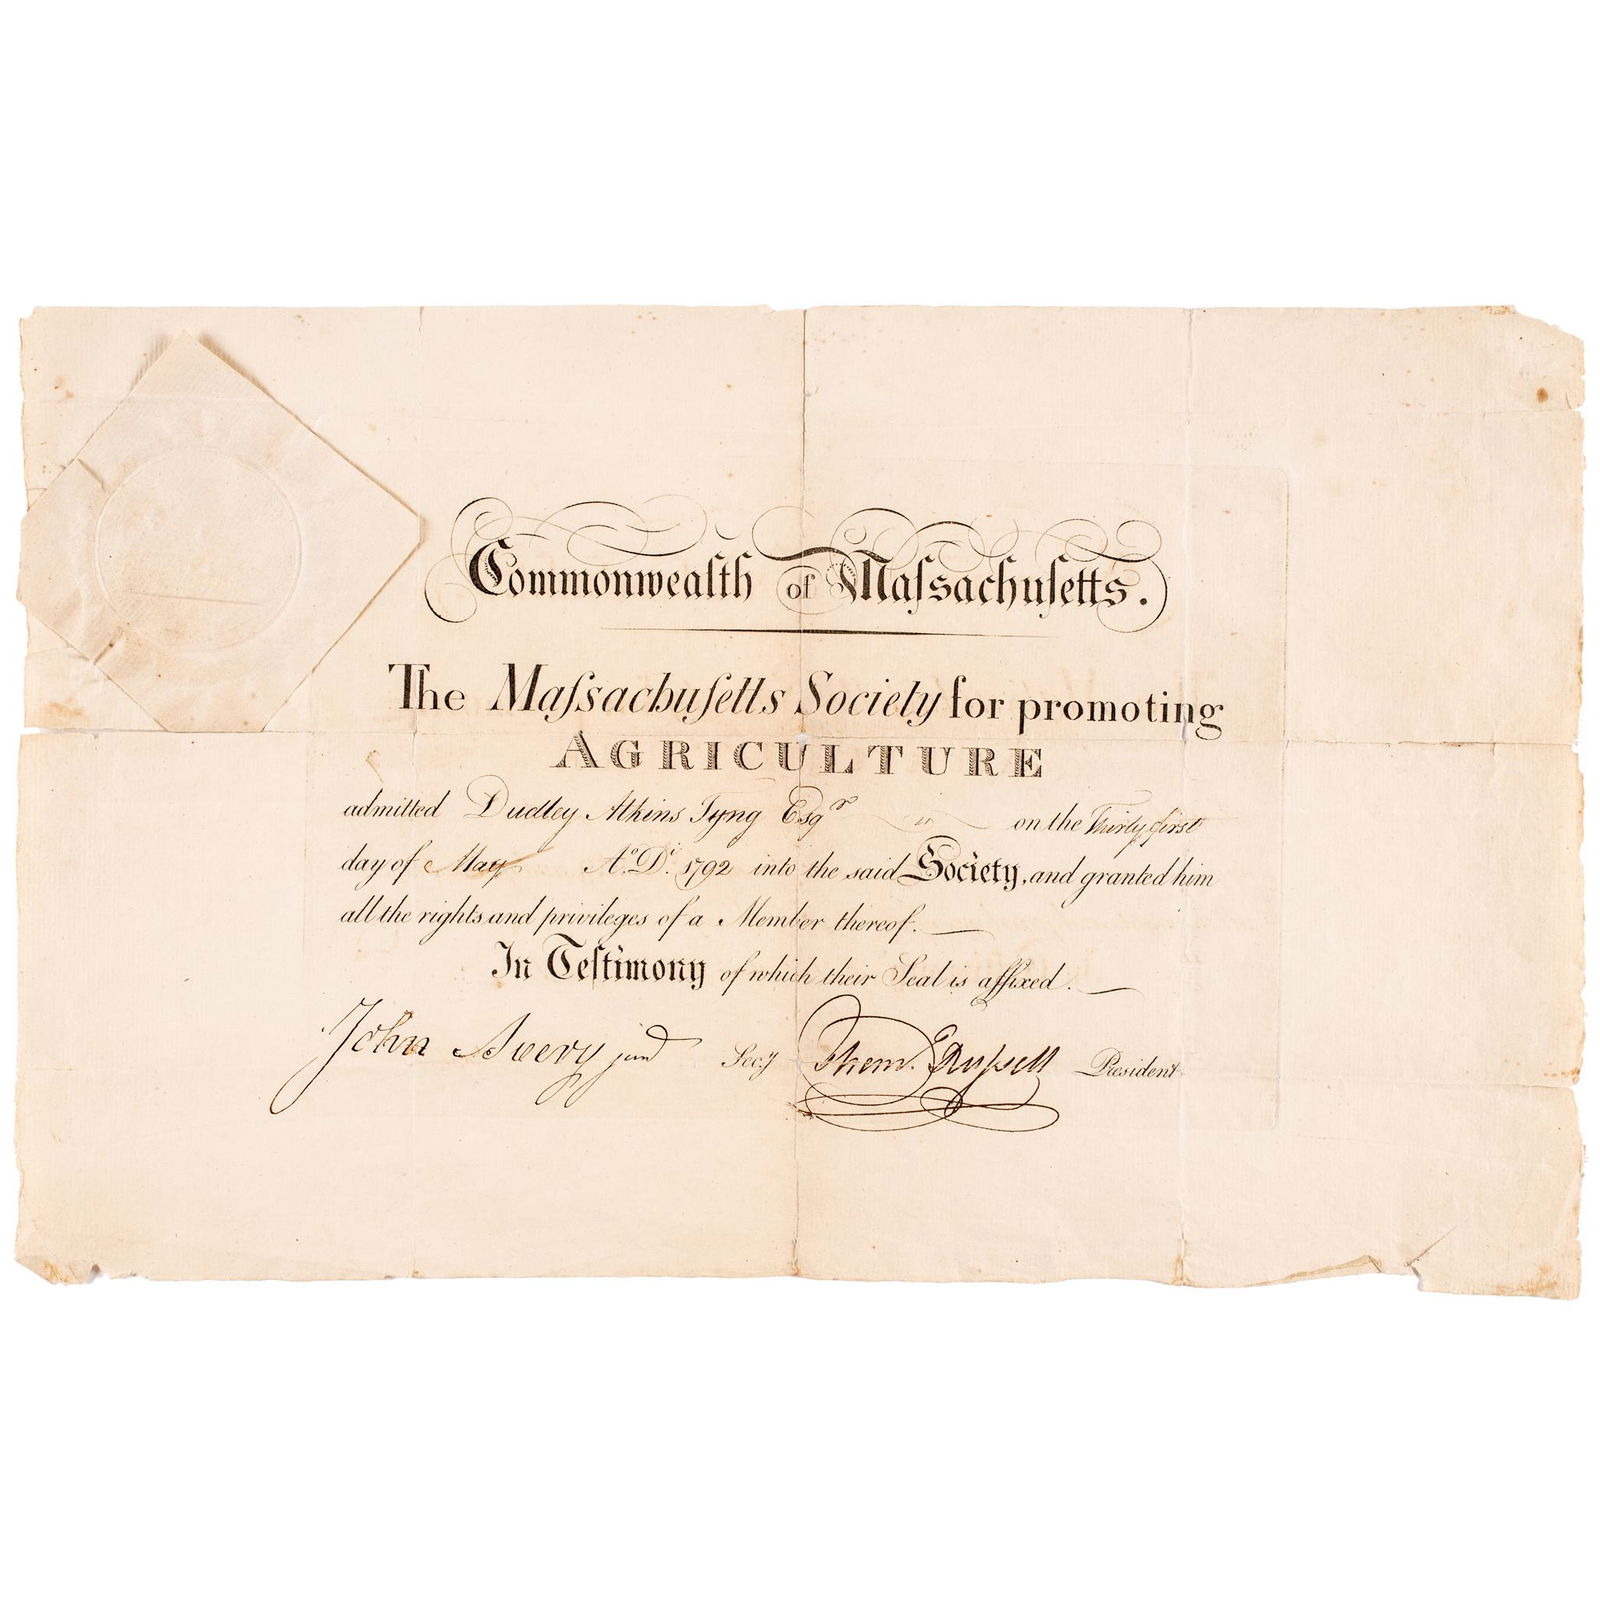 Commonwealth of Maſsachuſetts.
The Maſsachuſetts Society for promoting
AGRICULTURE
admitted Dudley Atkins Tyng Esqr on the Thirty first
day of May Ao. Di. 1792 into the said Society, and granted him
all the rights and privileges of a Member thereof.
In Teſtimony of which their Seal is affixed.
John Avery junr Secy Thom. Ruſsell President